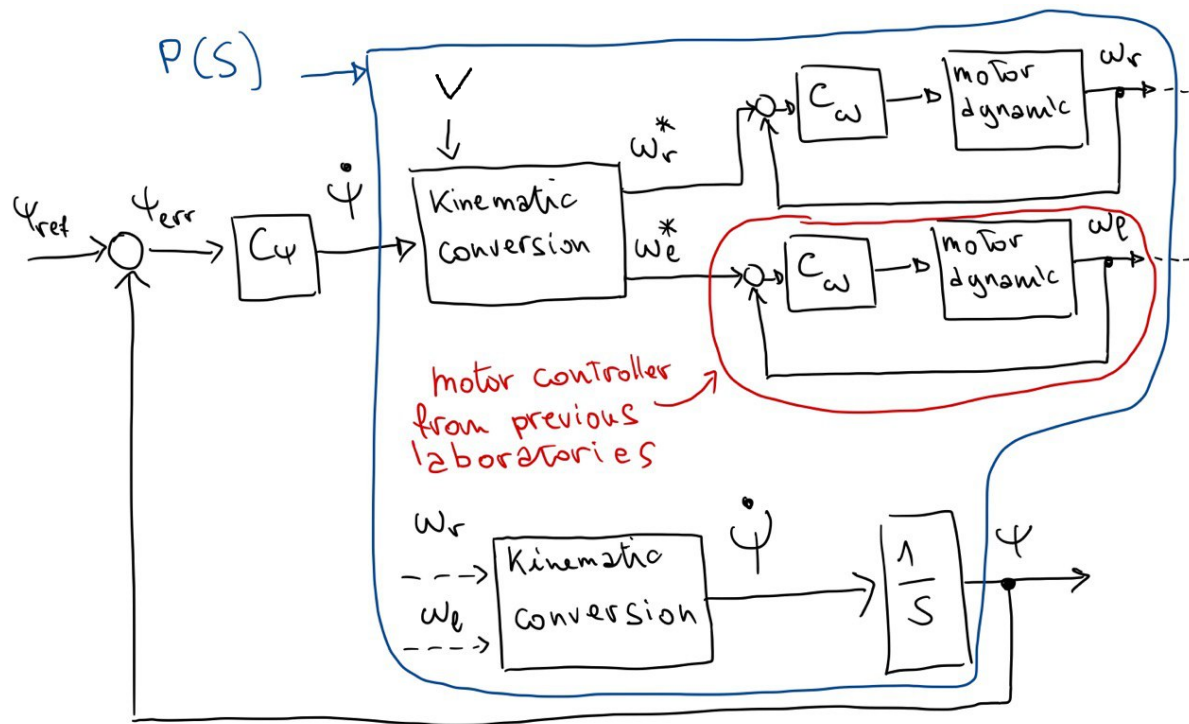 P(S)
V
ψref
ψerr
Cψ
ψ̇
Kinematic
conversion
ωr*
ωe*
Cω
motor
dynamic
ωr
Cω
motor
dynamic
ωe
motor controller
from previous
laboratories
ωr
ωe
Kinematic
conversion
ψ̇
1
S
ψ